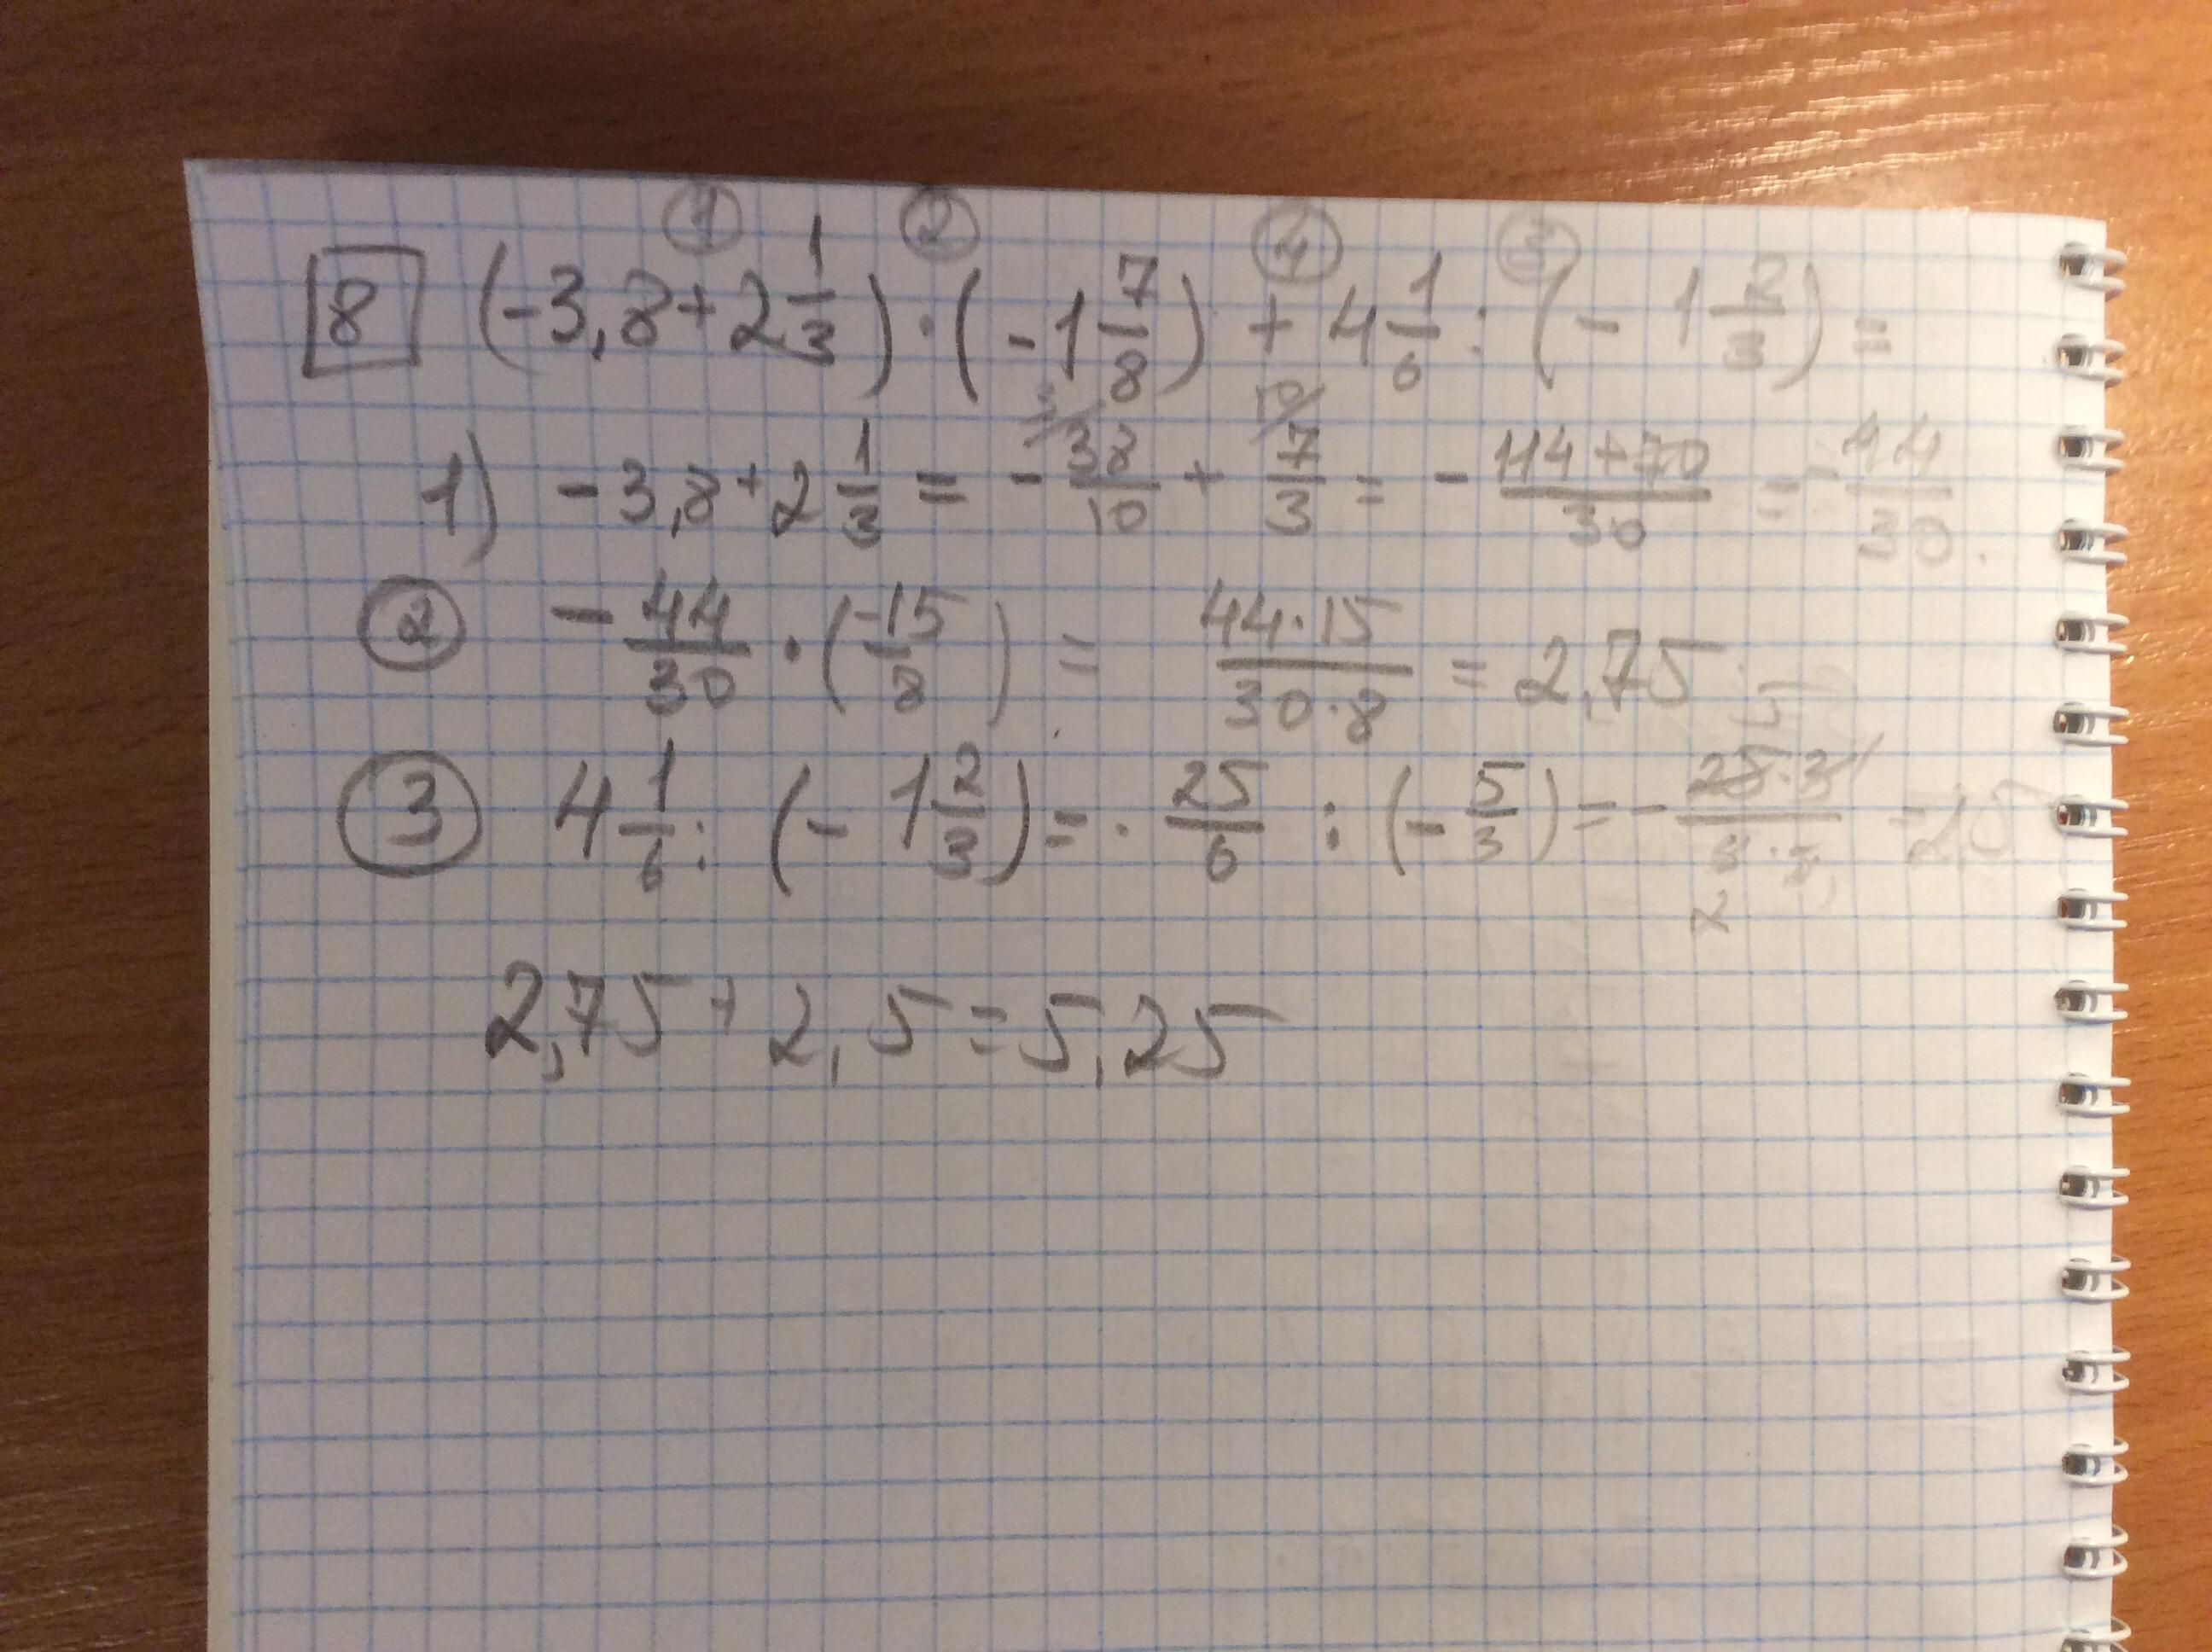 ① ② ④ ③
8 (-3,8+2 1/3)·(-1 7/8) + 4 1/6 : (- 1 2/3) =
1) -3,8+2 1/3 = - 3/ 38/10 + 10/ 7/3 = - 114+70/30 = - 44/30.
② - 44/30 · (-15/8) = 44·15/30·8 = 2,75
③ 4 1/6 : (- 1 2/3) = 25/6 : (- 5/3) = - 25·3/6·5 = 2,5
2,75 + 2,5 = 5,25